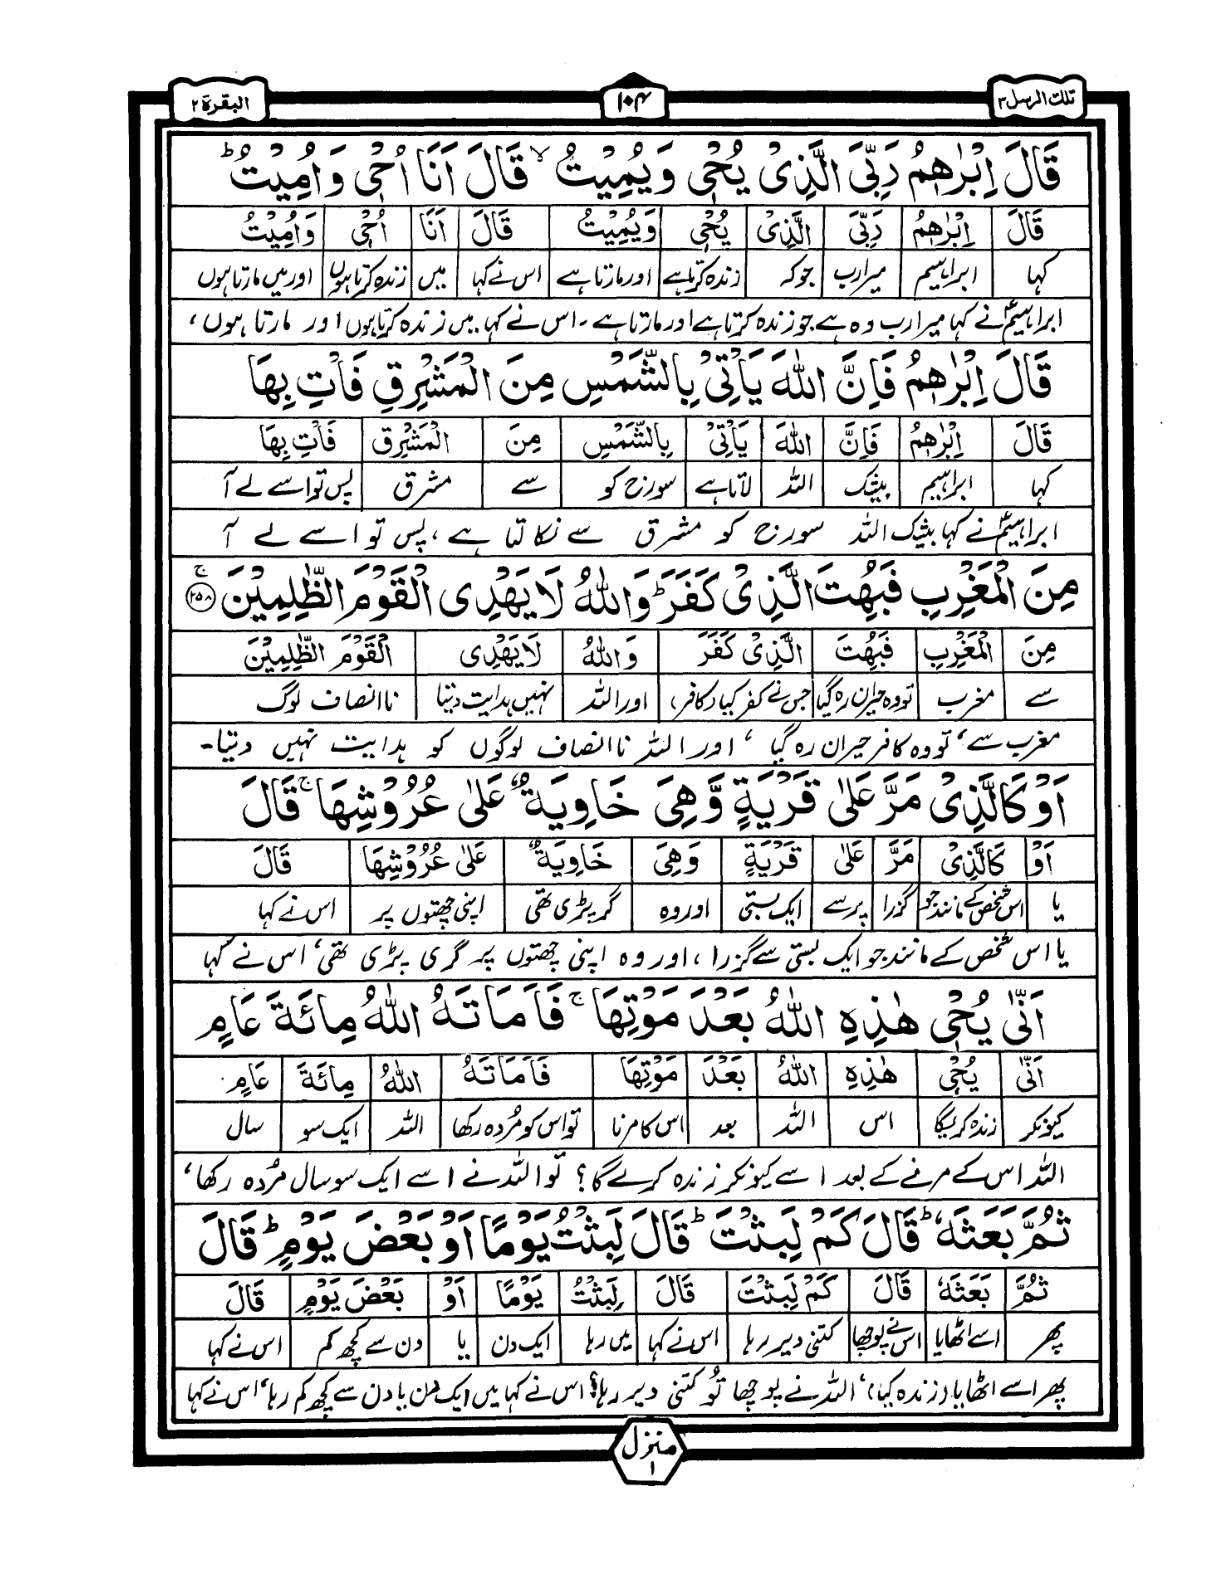 تلك الرسل ۳
۱۰۴
البقرة ۲
قَالَ اِبْرٰهٖمُ رَبِّیَ الَّذِیْ یُحْیٖ وَیُمِیْتُ ۙ قَالَ اَنَا اُحْیٖ وَاُمِیْتُ ؕ
قَالَ اِبْرٰهٖمُ رَبِّیَ الَّذِیْ یُحْیٖ وَیُمِیْتُ قَالَ اَنَا اُحْیٖ وَاُمِیْتُ
کہا ابراہیم میرا رب جو کہ زندہ کرتا ہے اور مارتا ہے اس نے کہا میں زندہ کرتا ہوں اور میں مارتا ہوں
ابراہیمؑ نے کہا میرا رب وہ ہے جو زندہ کرتا ہے اور مارتا ہے ۔ اس نے کہا میں زندہ کرتا ہوں اور مارتا ہوں ،
قَالَ اِبْرٰهٖمُ فَاِنَّ اللّٰهَ یَاْتِیْ بِالشَّمْسِ مِنَ الْمَشْرِقِ فَاْتِ بِهَا
قَالَ اِبْرٰهٖمُ فَاِنَّ اللّٰهَ یَاْتِیْ بِالشَّمْسِ مِنَ الْمَشْرِقِ فَاْتِ بِهَا
کہا ابراہیم بیشک اللہ لاتا ہے سورج کو سے مشرق پس تو اسے لے آ
ابراہیمؑ نے کہا بیشک اللہ سورج کو مشرق سے نکالتا ہے ، پس تو اسے لے آ
مِنَ الْمَغْرِبِ فَبُهِتَ الَّذِیْ كَفَرَ ؕ وَاللّٰهُ لَا یَهْدِی الْقَوْمَ الظّٰلِمِیْنَ ۚ ﴿۲۵۸﴾
مِنَ الْمَغْرِبِ فَبُهِتَ الَّذِیْ كَفَرَ وَاللّٰهُ لَا یَهْدِی الْقَوْمَ الظّٰلِمِیْنَ
سے مغرب تو وہ حیران رہ گیا جس نے کفر کیا (کافر) اور اللہ نہیں ہدایت دیتا ناانصاف لوگ
مغرب سے ، تو وہ کافر حیران رہ گیا ، اور اللہ ناانصاف لوگوں کو ہدایت نہیں دیتا ۔
اَوْ كَالَّذِیْ مَرَّ عَلٰی قَرْیَةٍ وَّهِیَ خَاوِیَةٌ عَلٰی عُرُوْشِهَا ۚ قَالَ
اَوْ كَالَّذِیْ مَرَّ عَلٰی قَرْیَةٍ وَهِیَ خَاوِیَةٌ عَلٰی عُرُوْشِهَا قَالَ
یا اس شخص کے مانند جو گزرا پر سے ایک بستی اور وہ گر پڑی تھی اپنی چھتوں پر اس نے کہا
یا اس شخص کے مانند جو ایک بستی سے گزرا ، اور وہ اپنی چھتوں پر گری پڑی تھی ، اس نے کہا
اَنّٰی یُحْیٖ هٰذِهِ اللّٰهُ بَعْدَ مَوْتِهَا ۚ فَاَمَاتَهُ اللّٰهُ مِائَةَ عَامٍ
اَنّٰی یُحْیٖ هٰذِهِ اللّٰهُ بَعْدَ مَوْتِهَا فَاَمَاتَهُ اللّٰهُ مِائَةَ عَامٍ
کیونکر زندہ کریگا اس اللہ بعد اس کا مرنا تو اس کو مُردہ رکھا اللہ ایک سو سال
اللہ اس کے مرنے کے بعد اسے کیونکر زندہ کرے گا ؟ تو اللہ نے اسے ایک سو سال مُردہ رکھا ،
ثُمَّ بَعَثَهٗ ؕ قَالَ كَمْ لَبِثْتَ ؕ قَالَ لَبِثْتُ یَوْمًا اَوْ بَعْضَ یَوْمٍ ؕ قَالَ
ثُمَّ بَعَثَهٗ قَالَ كَمْ لَبِثْتَ قَالَ لَبِثْتُ یَوْمًا اَوْ بَعْضَ یَوْمٍ قَالَ
پھر اسے اٹھایا اس نے پوچھا کتنی دیر رہا اس نے کہا میں رہا ایک دن یا دن سے کچھ کم اس نے کہا
پھر اسے اٹھایا (زندہ کیا) ، اللہ نے پوچھا تُو کتنی دیر رہا؟ اس نے کہا میں ایک دن یا دن سے کچھ کم رہا ، اس نے کہا
منزل
۱